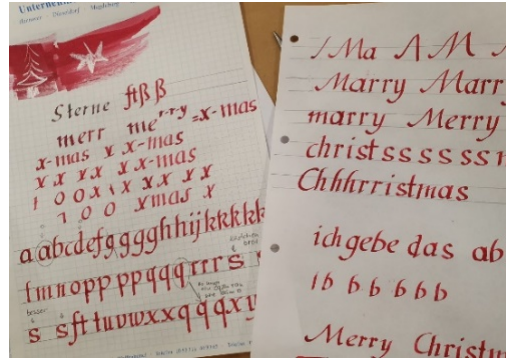 Sterne ftß ß
merr me r-r-y =x-mas
x-mas x x-mas
x x x x x-mas
1 0 0 x 1 x x x x
1 0 0 xmas x
a abcdefggg g h hijkkkkk
lmnopp p p qqqrrr s
besser
s sft tuvwxxqqqxy
1 Ma A M
Marry Marr
marry Merry
christ ss s s s s
Chhhrristmas
ich gebe das ab
1b b b b b b
Merry Christm